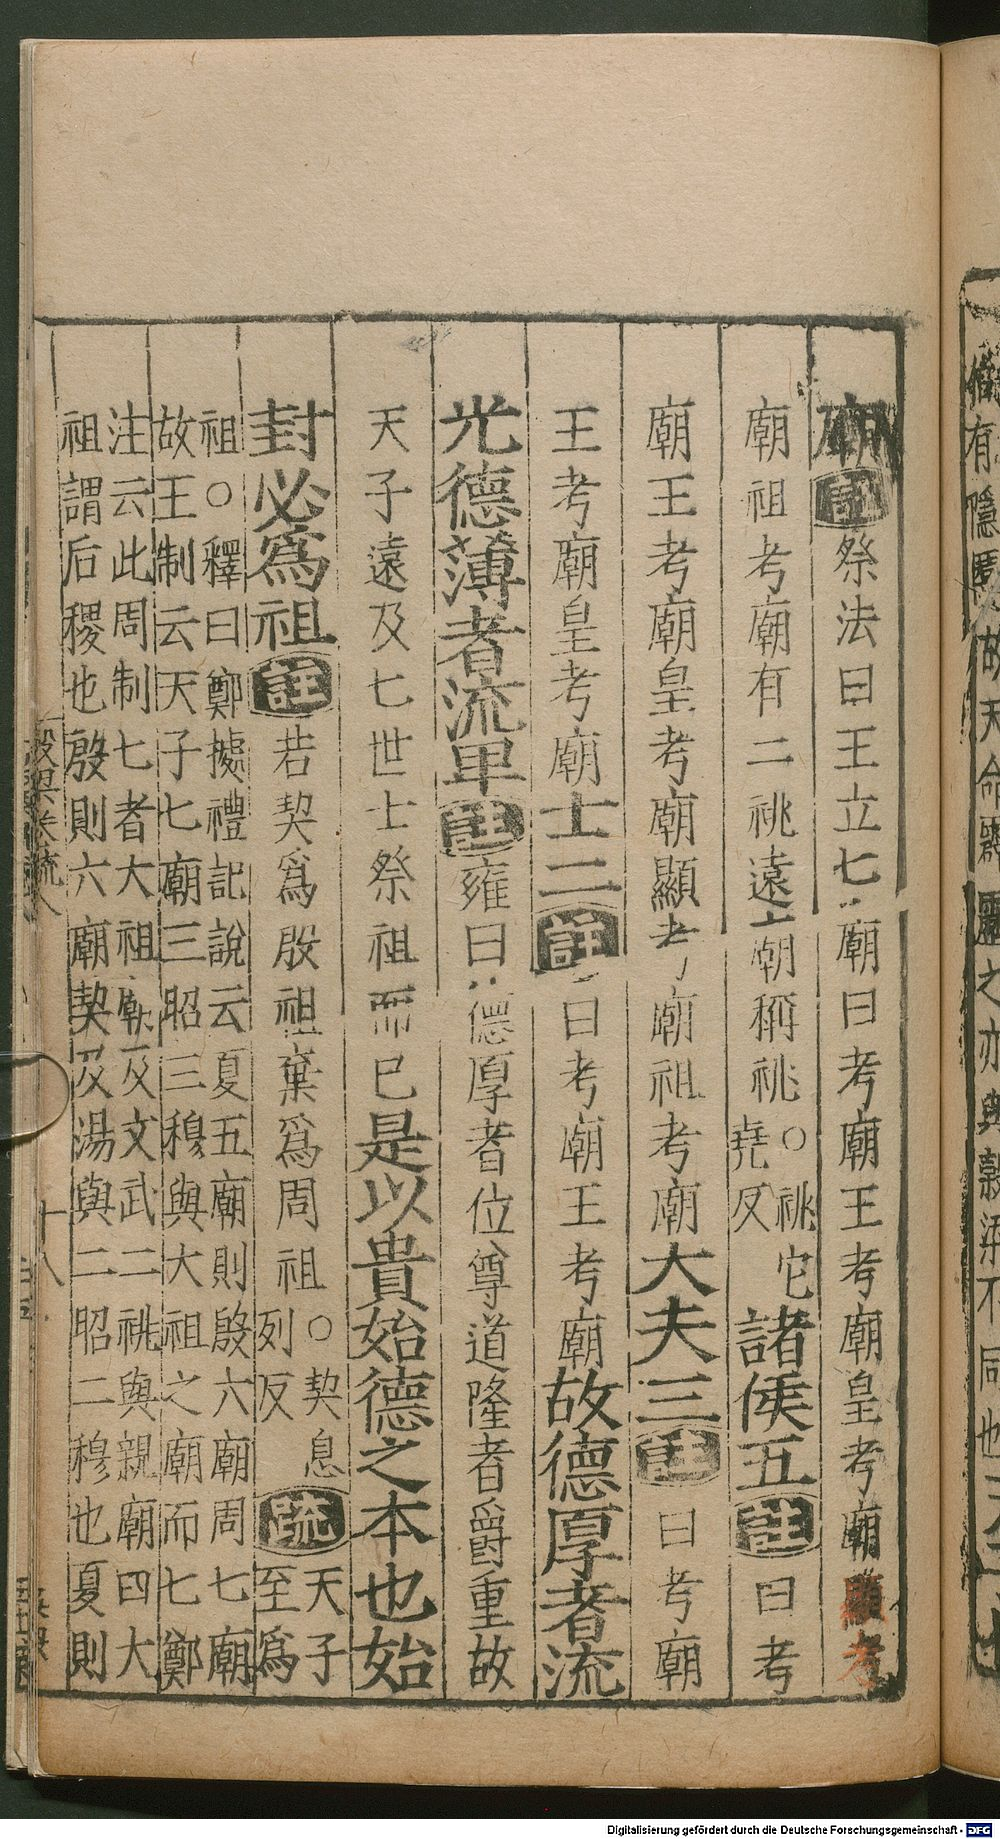 廟註祭法曰王立七廟曰考廟王考廟皇考廟顯考
廟祖考廟有二祧遠廟稱祧○祧它
堯反諸侯五註曰考
廟王考廟皇考廟顯考廟祖考廟大夫三註曰考廟
王考廟皇考廟士二註曰考廟王考廟故德厚者流
光德薄者流卑註雍曰德厚者位尊道隆者爵重故
天子遠及七世士祭祖而已是以貴始德之本也始
封必爲祖註若契爲殷祖棄爲周祖○契息
列反疏天子
至爲
祖○釋曰鄭據禮記說云夏五廟則殷六廟周七廟
故王制云天子七廟三昭三穆與大祖之廟而七鄭
注云此周制七者大祖廟及文武二祧與親廟四大
祖謂后稷也殷則六廟契及湯與二昭二穆也夏則
十八
有隱
故天命
之亦與
不同也
Digitalisierung gefördert durch die Deutsche Forschungsgemeinschaft - DFG